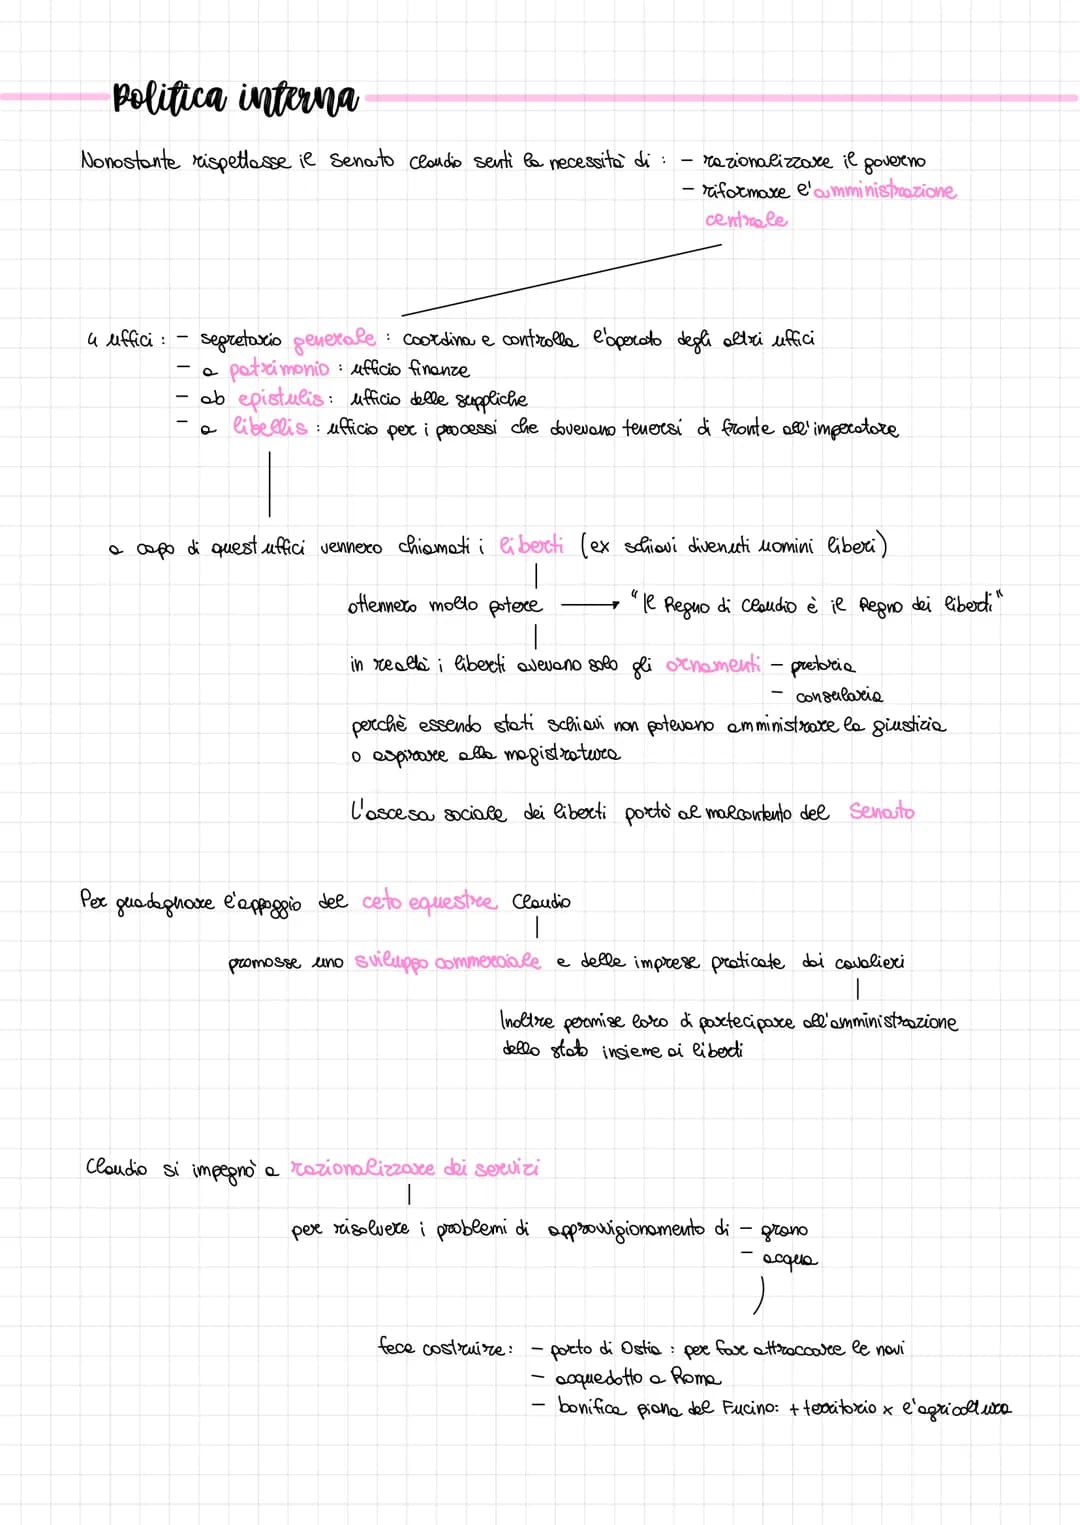 Politica interna
Nonostante rispettasse il Senato Claudio sentì la necessità di : - razionalizzare il governo
- riformare l'amministrazione
centrale
4 uffici : - segretario generale : coordina e controlla l'operato degli altri uffici
- a patrimonio : ufficio finanze
- ab epistulis : ufficio delle suppliche
- a libellis : ufficio per i processi che dovevano tenersi di fronte all'imperatore
a capo di quest uffici vennero chiamati i liberti (ex schiavi divenuti uomini liberi)
ottennero molto potere → "Il Regno di Claudio è il Regno dei liberti"
in realtà i liberti avevano solo gli ornamenti - pretoria
- consularia
perchè essendo stati schiavi non potevano amministrare la giustizia
o aspirare alla magistratura
L'ascesa sociale dei liberti portò al malcontento del Senato
Per guadagnare l'appoggio del ceto equestre Claudio
promosse uno sviluppo commerciale e delle imprese praticate dai cavalieri
Inoltre permise loro di partecipare all'amministrazione
dello stato insieme ai liberti
Claudio si impegnò a razionalizzare dei servizi
per risolvere i problemi di approvvigionamento di - grano
- acqua
fece costruire: - porto di Ostia : per fare attraccare le navi
- acquedotto a Roma
- bonifica piana del Fucino: + territorio x l'agricoltura